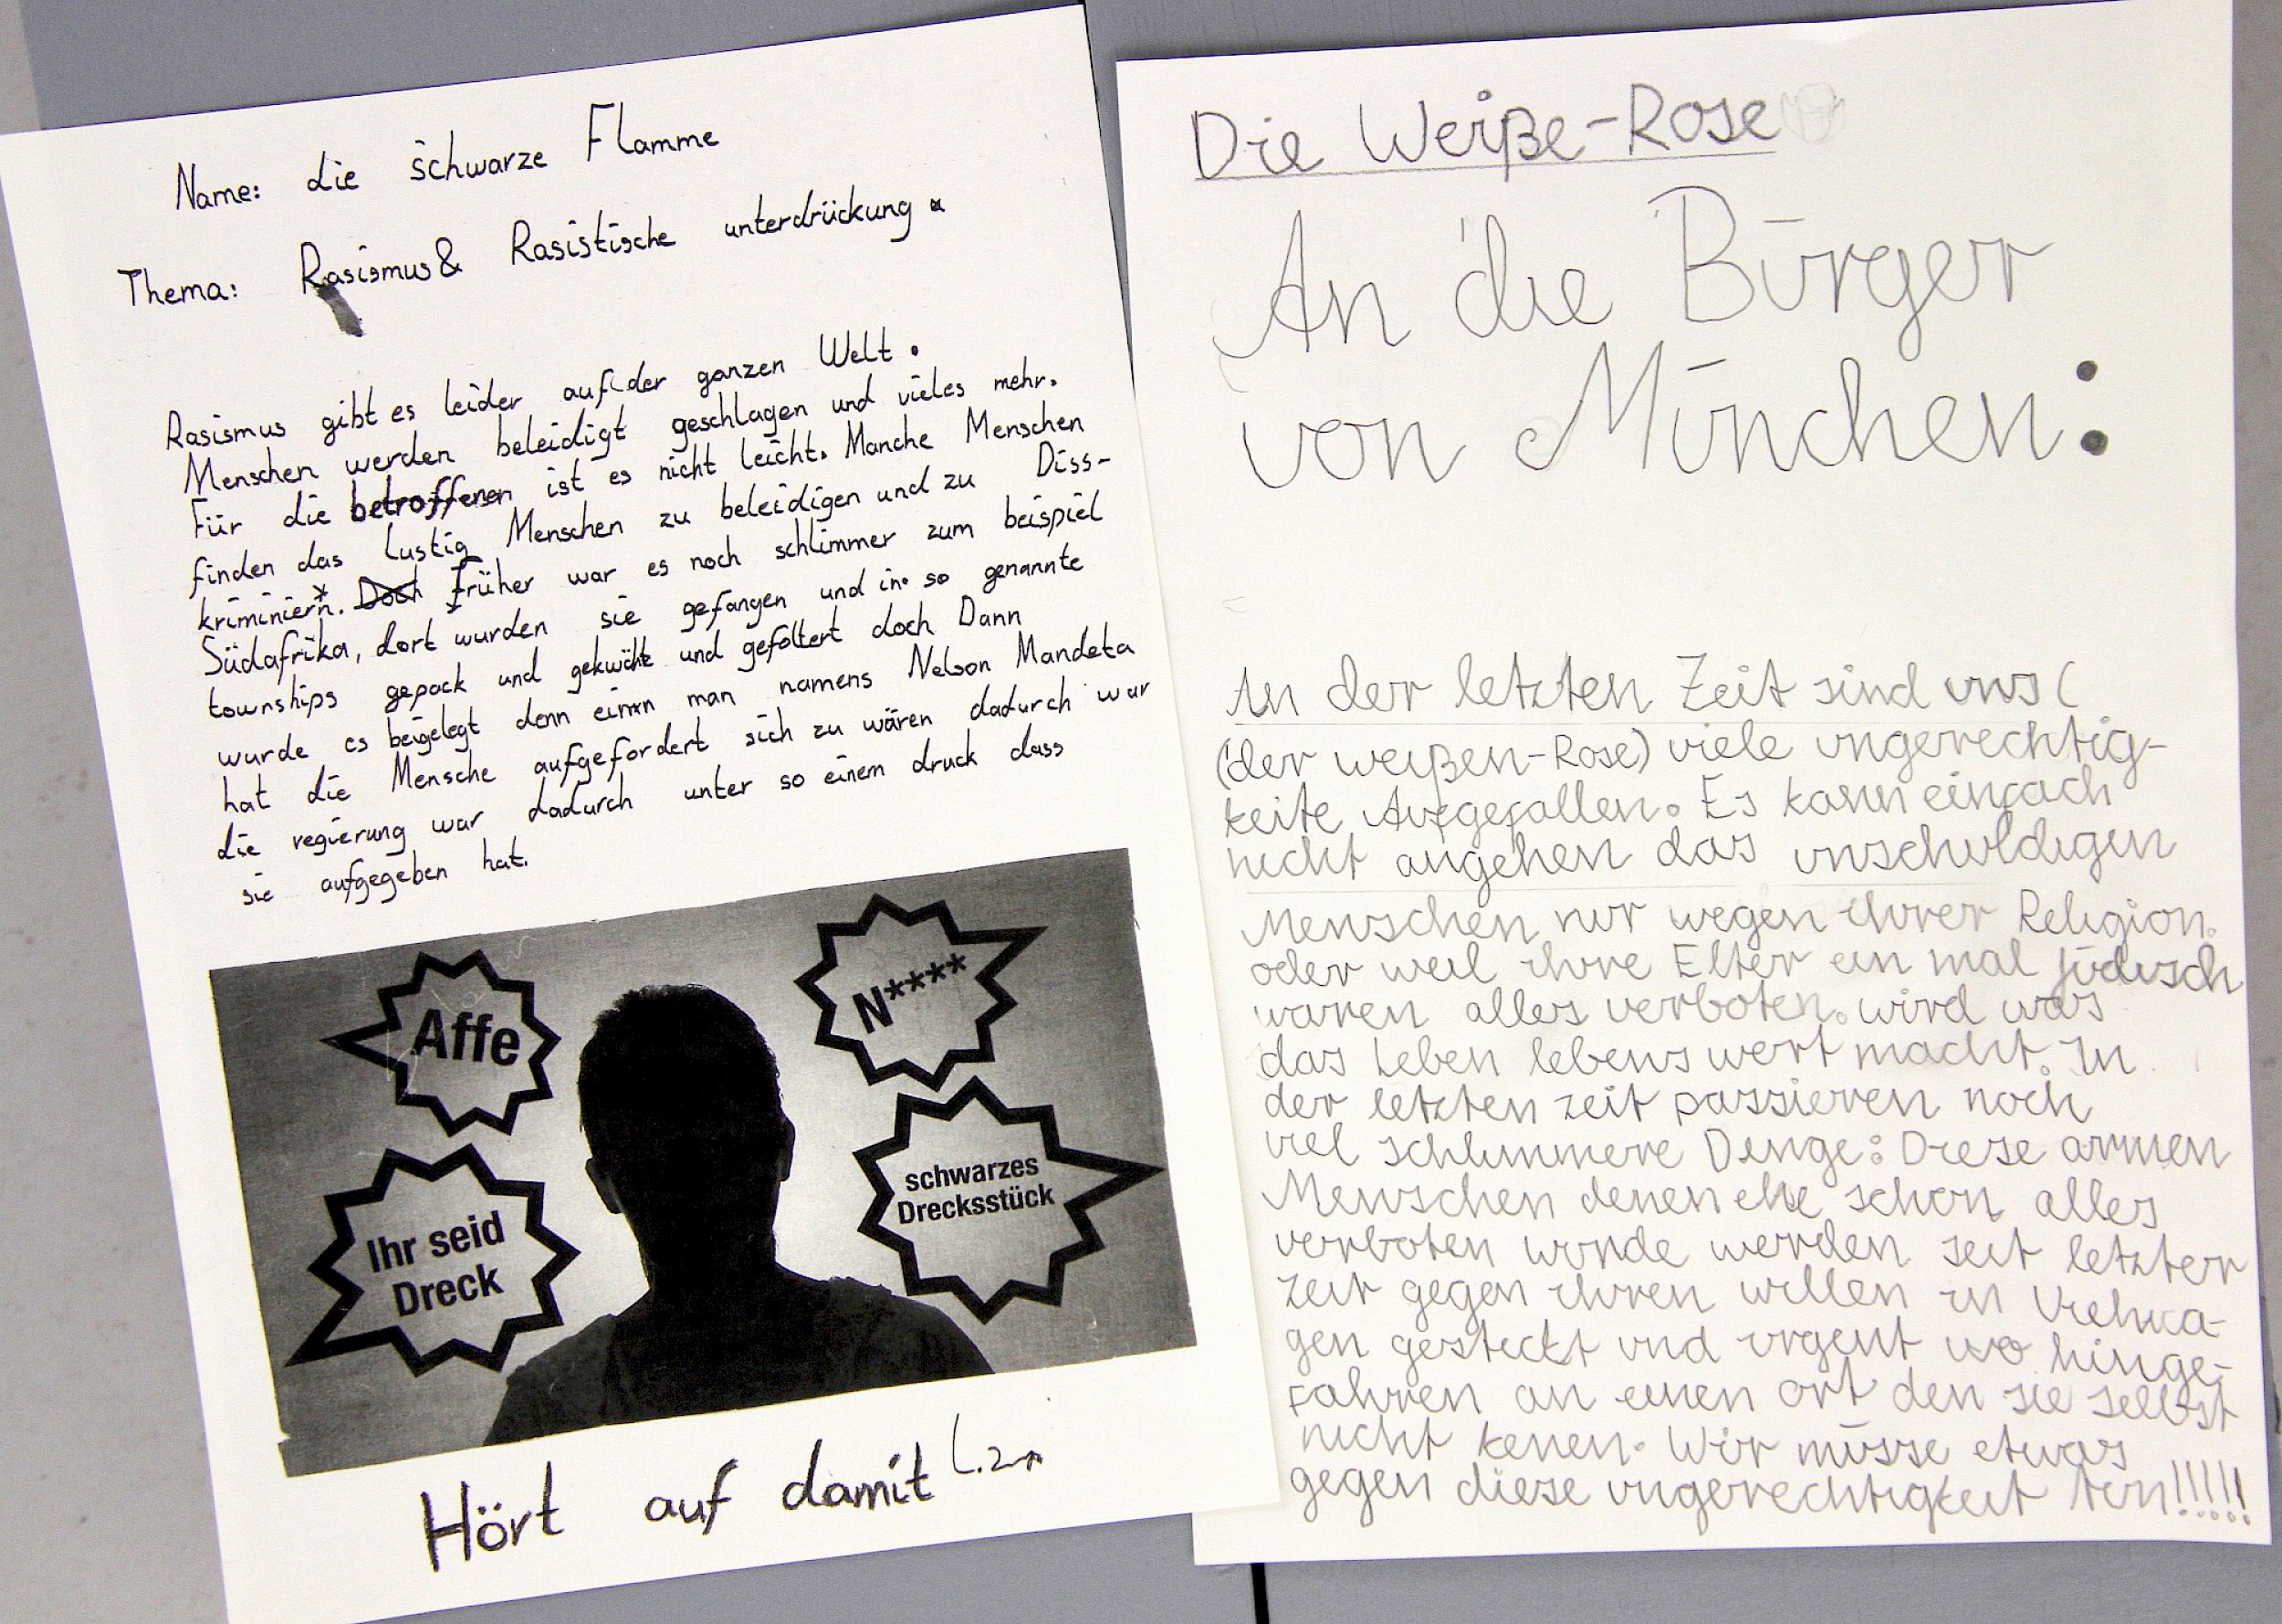 Name: die schwarze Flamme
Thema: Rasismus & Rasistische unterdrückung
Rasismus gibt es leider auf der ganzen Welt.
Menschen werden beleidigt geschlagen und vieles mehr.
Für die betroffenen ist es nicht leicht. Manche Menschen
finden das lustig Menschen zu beleidigen und zu Diss-
kriminiern. Doch Früher war es noch schlimmer zum beispiel
Südafrika, dort wurden sie gefangen und in so genannte
townships gepack und und gefoltert doch Dann
wurde es beigelegt denn einen man namens Nelson Mandela
hat die Mensche aufgefordert sich zu wären dadurch war
die regierung war dadurch unter so einem druck dass
sie aufgegeben hat.
Affe
N****
Ihr seid
Dreck
schwarzes
Drecksstück
Hört auf damit
Die Weiße-Rose
An die Bürger
von München:
In der letzten Zeit sind uns (
(der weißen-Rose) viele ungerechtig-
keite Aufgefallen. Es kann einfach
nicht angehen das unschuldigen
Menschen nur wegen ihrer Religion
oder weil ihre Elter ein mal jüdisch
waren alles verboten wird was
das Leben lebens wert macht. In
der letzten zeit passieren noch
viel schlimmere Dinge: Diese armen
Menschen denen ehe schon alles
verboten wurde werden seit letzter
zeit gegen ihren willen in Viehwa-
gen gesteckt und irgent wo hinge-
fahren an einen ort den sie selbst
nicht kenen. Wir müsse etwas
gegen diese ungerechtigkeit tun!!!!!